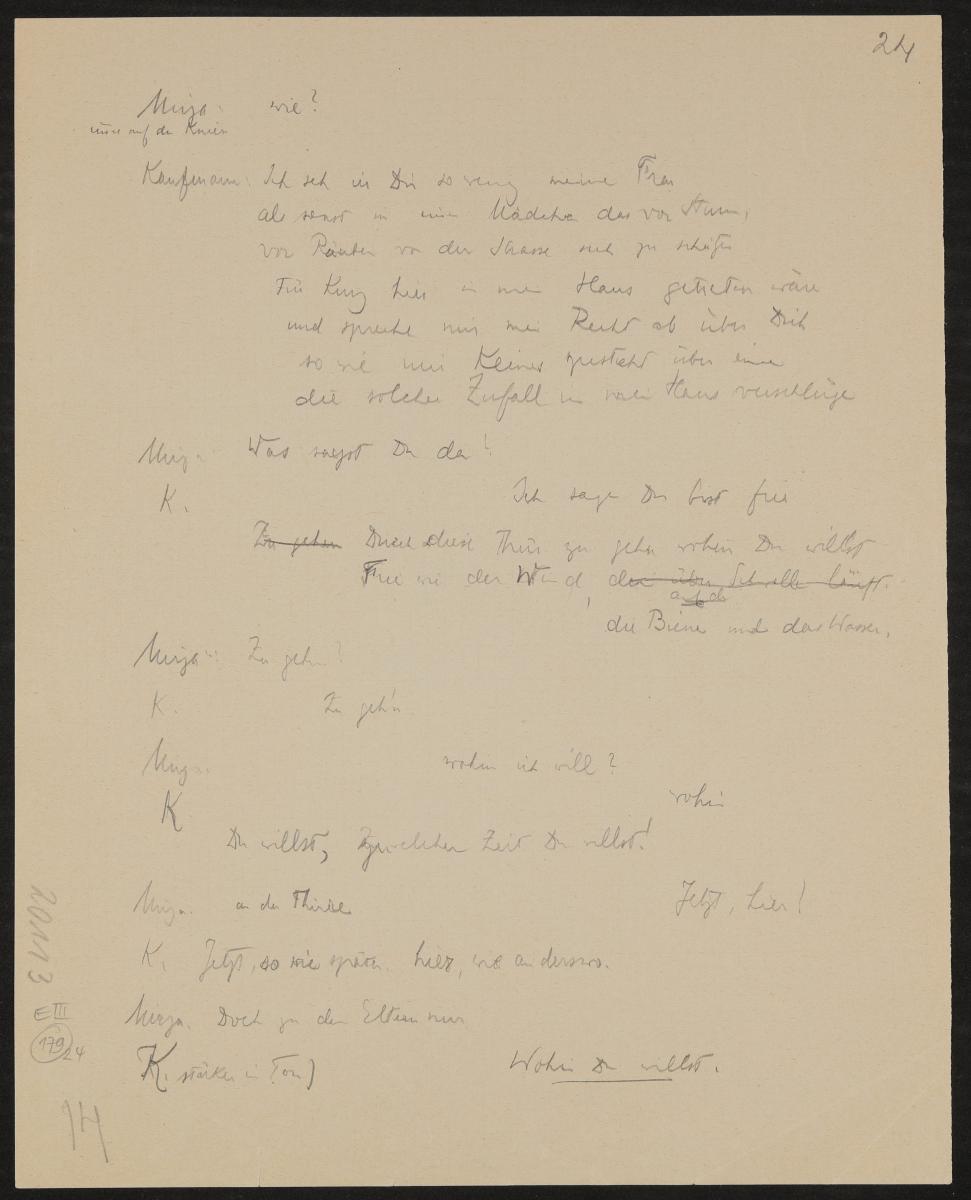 24
Mirza: wie?
immer auf den Knien
Kaufmann: Ich seh in Dir so wenig meine Frau
als sonst in einem Mädchen das vor Sturm,
vor Räuber von der Strasse sich zu schützen
Für Kurz hier in mein Haus getreten wäre
und spreche mir mein Recht ab über Dich
so wie mir Keines zusteht über eine
die solcher Zufall in mein Haus verschlüge
Mirza: Was sagst Du da!
K. Ich sage Du bist frei
Zu gehen Durch diese Thür zu gehn wohin Du willst
Frei wie der Wind, der über Schwelle läuft.
auf der
die Biene und das Wasser.
Mirza: Zu gehn?
K. Zu gehn.
Mirza. wohin ich will?
K wohin
Du willst, zu welcher Zeit Du willst!
Mirza. an der Thüre Jetzt, hier!
K. Jetzt, so wie später. hier, wie anderswo.
Mirza. Doch zu den Eltern nur
K. stärker im Ton) Wohin Du willst.
20113
E III
179
24
14